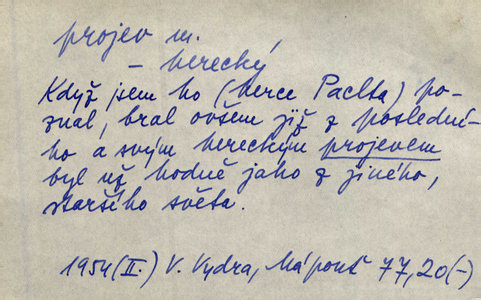 projev m.
– herecký
Když jsem ho (herce Paclta) po-
znal, bral ovšem již z poslední-
ho a svým hereckým projevem
byl už hodně jako z jiného,
staršího světa.
1954 (II.) V. Vydra, Má pouť 77,20 (-)